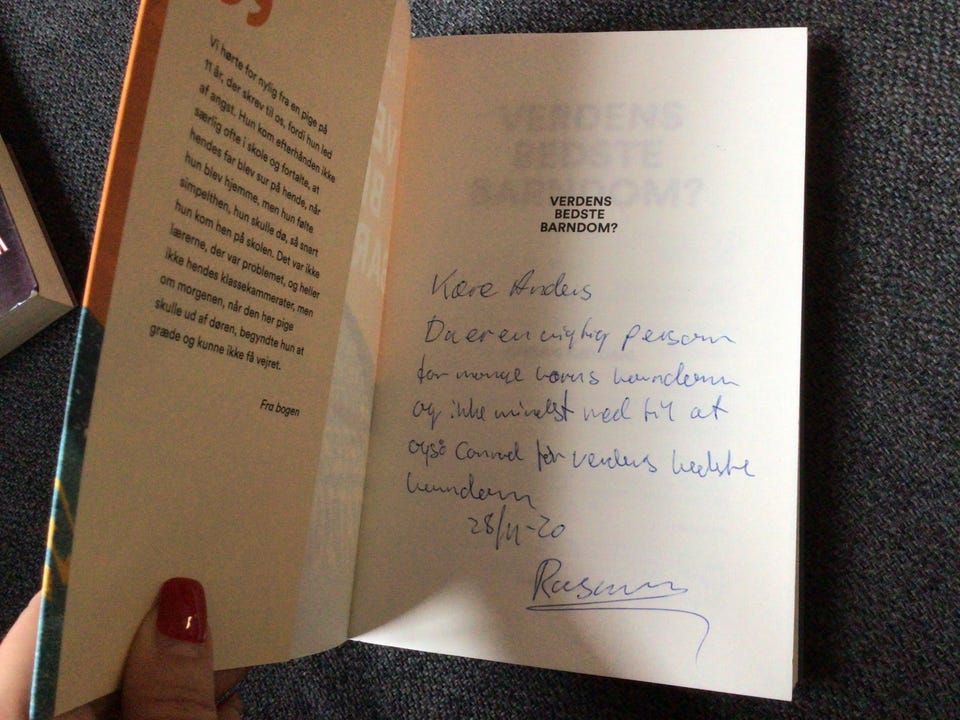 Vi hørte for nylig fra en pige på
11 år, der skrev til os, fordi hun led
af angst. Hun kom efterhånden ikke
særlig ofte i skole og fortalte, at
hendes far blev sur på hende, når
hun blev hjemme, men hun følte
simpelthen, hun skulle dø, så snart
hun kom hen på skolen. Det var ikke
lærerne, der var problemet, og heller
ikke hendes klassekammerater, men
om morgenen, når den her pige
skulle ud af døren, begyndte hun at
græde og kunne ikke få vejret.
Fra bogen
VERDENS
BEDSTE
BARNDOM?
VERDENS
BEDSTE
BARNDOM?
Kære Anders
Du er en vigtig person
for mange børns barndom
og ikke mindst med til at
også Conrad får verdens bedste
barndom
28/11-20
Rasmus